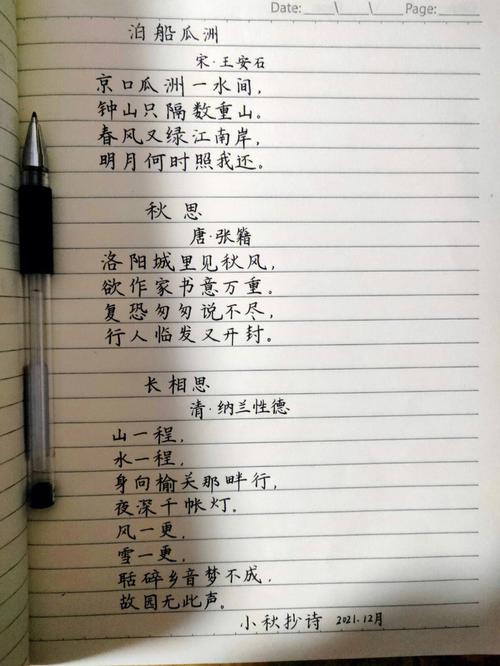 Date: \ \ Page:
泊船瓜洲
宋·王安石
京口瓜洲一水间,
钟山只隔数重山。
春风又绿江南岸,
明月何时照我还。
秋思
唐·张籍
洛阳城里见秋风,
欲作家书意万重。
复恐匆匆说不尽,
行人临发又开封。
长相思
清·纳兰性德
山一程,
水一程,
身向榆关那畔行,
夜深千帐灯。
风一更,
雪一更,
聒碎乡音梦不成,
故园无此声。
小秋抄诗 2021.12月